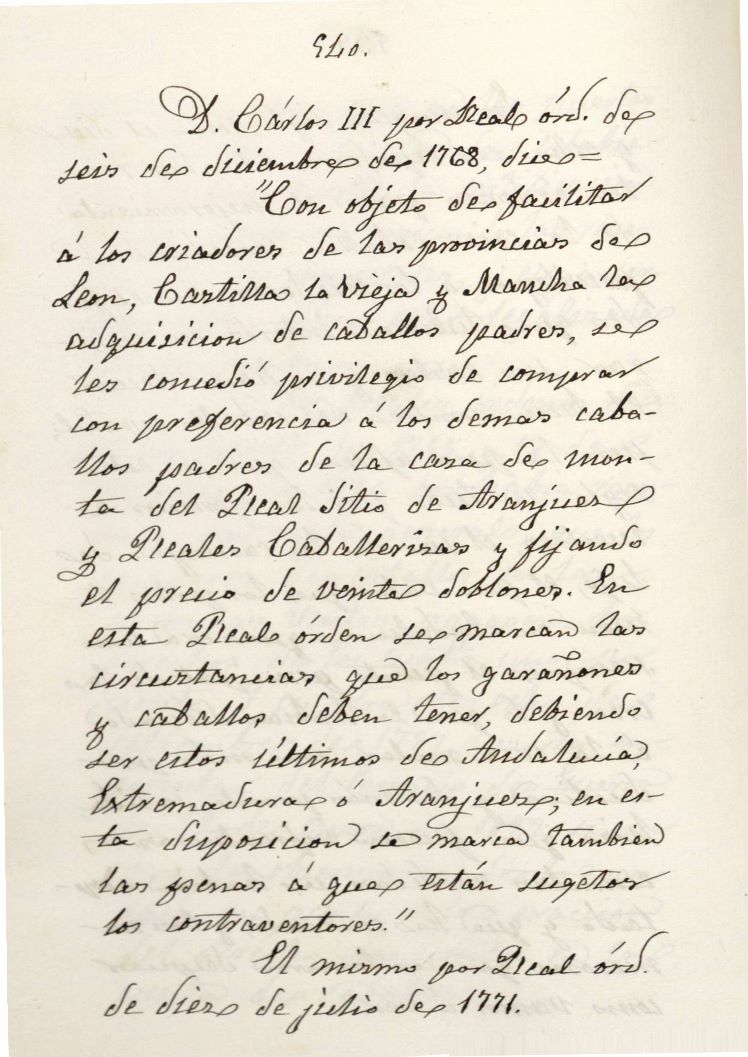 540.
D. Cárlos III por Real órd. de
seis de diciembre de 1768, dice=
"Con objeto de facilitar
á los criadores de las provincias de
Leon, Castilla la Vieja y Mancha la
adquisicion de caballos padres, se
les concedió privilegio de comprar
con preferencia á los demas caba-
llos padres de la casa de mon-
ta del Real Sitio de Aranjuez
y Reales Caballerizas y fijando
el precio de veinte doblones. En
esta Real órden se marcan las
circustancias que los garañones
y caballos deben tener, debiendo
ser estos últimos de Andalucía,
Extremadura ó Aranjuez; en es-
ta disposicion se marca tambien
las penas á que están sugetos
los contraventores."
El mismo por Real órd.
de diez de julio de 1771.